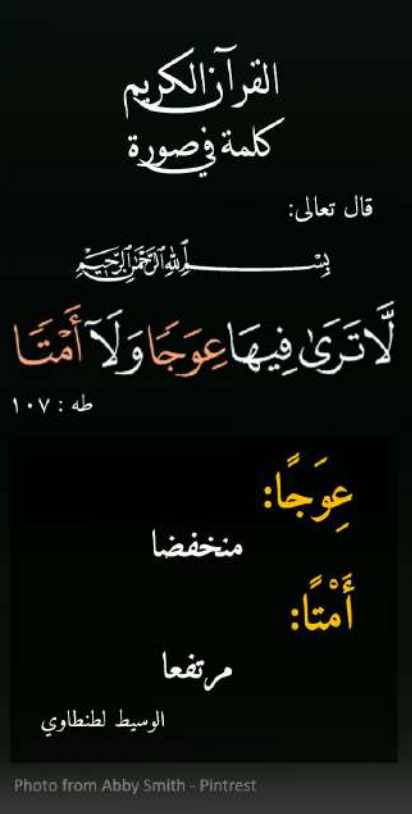 القرآن الكريم
كلمة في صورة
قال تعالى:
بِسْمِ اللَّهِ الرَّحْمَٰنِ الرَّحِيمِ
لَّا تَرَىٰ فِيهَا عِوَجًا وَلَآ أَمْتًا
طه : ١٠٧
عِوَجًا:
منخفضا
أَمْتًا:
مرتفعا
الوسيط لطنطاوي
Photo from Abby Smith - Pintrest